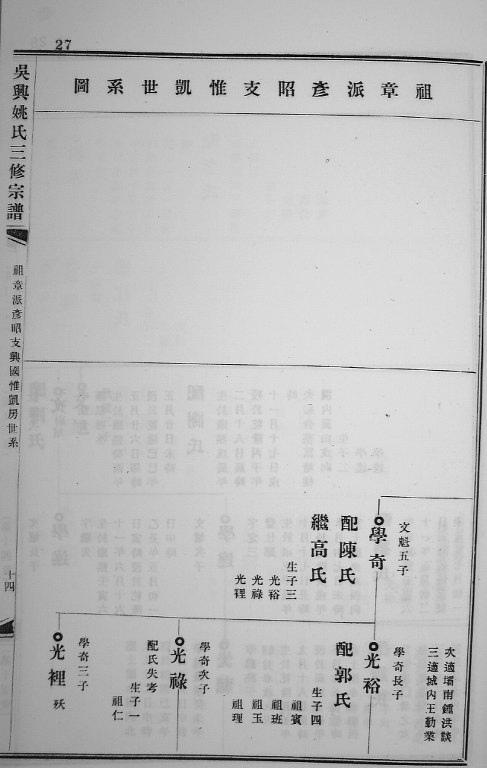 27
祖章派彥昭支惟凱世系圖
吳興姚氏三修宗譜
祖章派彥昭支興國惟凱房世系
十四
文魁五子
學奇
配陳氏
繼高氏
生子三
光裕
光祿
光裡
次適壩南鍾洪談
三適城內王勤業
學奇長子
光裕
配郭氏
生子四
祖賓
祖班
祖玉
祖理
學奇次子
光祿
配氏失考
生子一
祖仁
學奇三子
光裡
殀